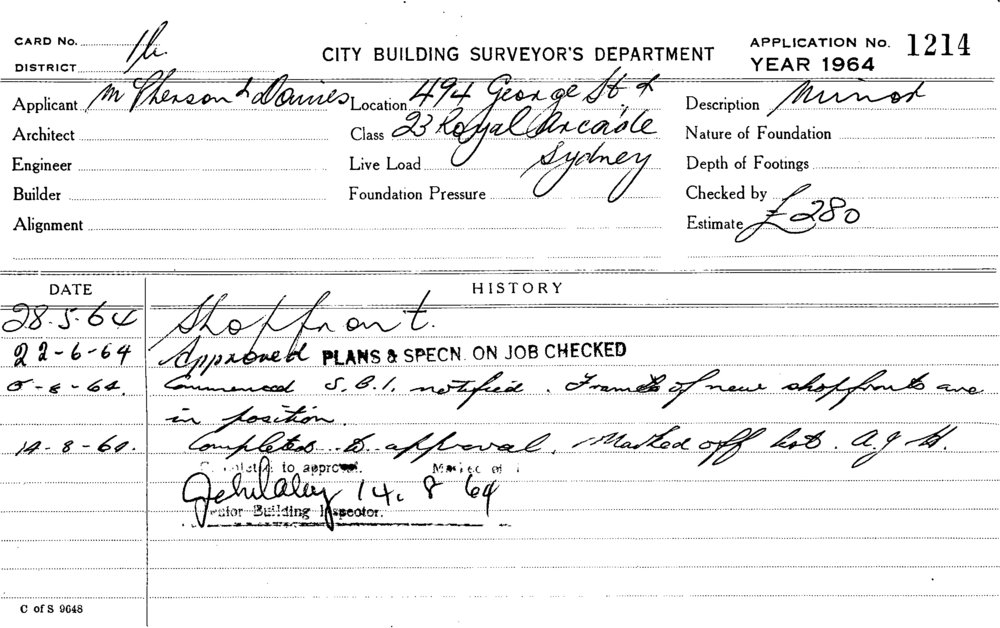 CARD No. 1b
DISTRICT
CITY BUILDING SURVEYOR'S DEPARTMENT
APPLICATION No. 1214
YEAR 1964
Applicant McPherson & Davies
Location 494 George St. &
Description Minor
Architect
Class 23 Royal Arcade
Nature of Foundation
Engineer
Live Load Sydney
Depth of Footings
Builder
Foundation Pressure
Checked by
Alignment
Estimate £280
DATE HISTORY
28.5.64 Shopfront.
22-6-64 Approved PLANS & SPECN. ON JOB CHECKED
5-8-64. Commenced S.B.I. notified. Frames of new shopfronts are
in position.
14-8-64. Completed to approval. Marked off list. A.J.H.
to approval.
14. 8 64
Senior Building Inspector.
C of S 9648